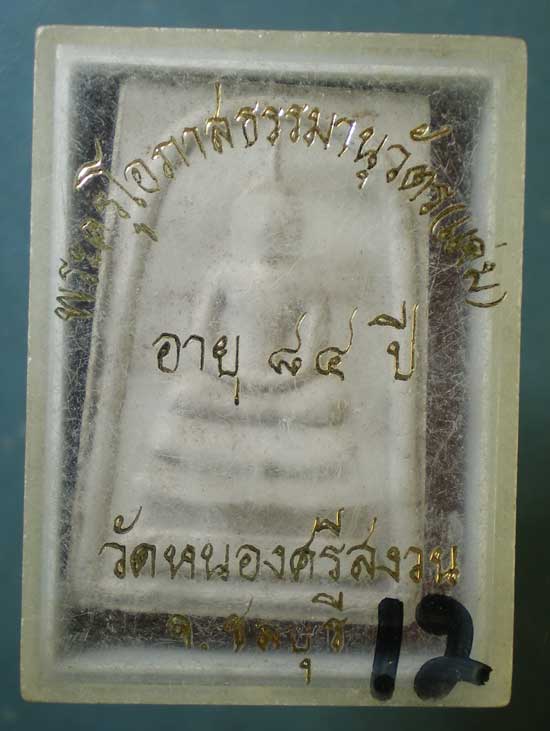 พระครูโอภาสธรรมานุวัตร(แค่น)
อายุ ๘๔ ปี
วัดหนองศรีสงวน
จ. ชลบุรี
12